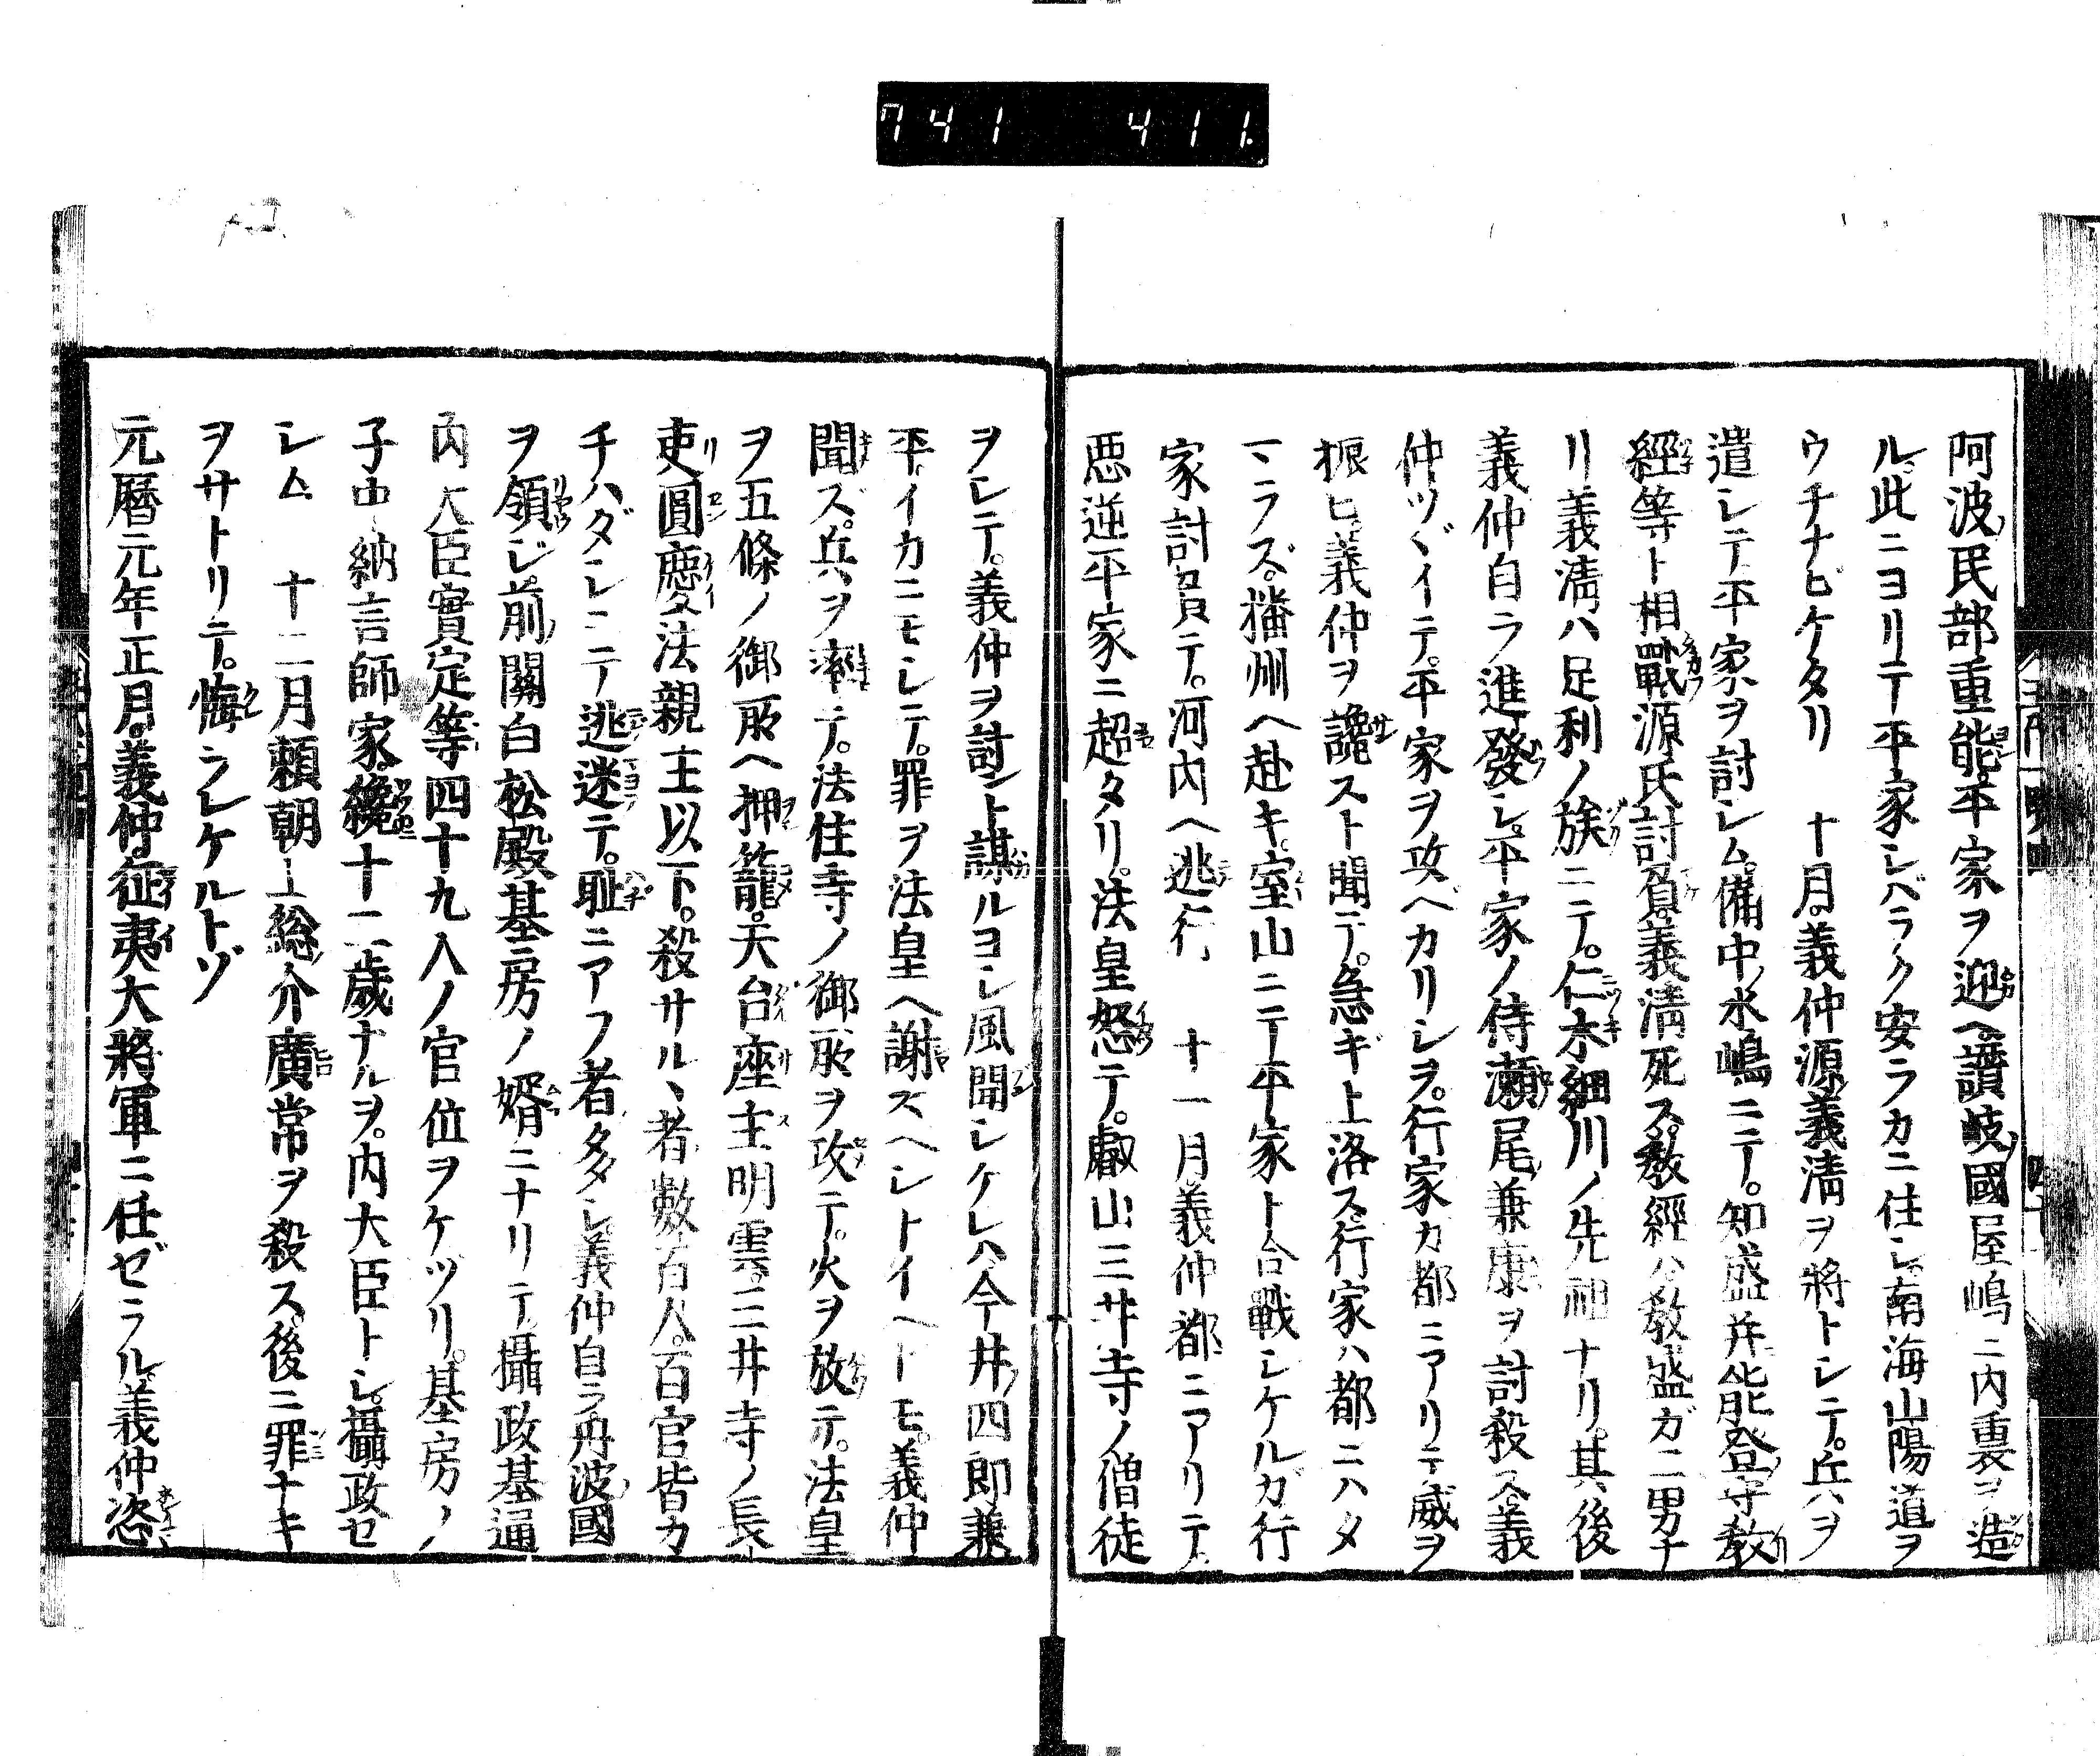 741 411.
阿波民部重能平家ヲ迎ヘ讃岐國屋嶋ニ内裏ヲ造
ル。此ニヨリテ平家シバラク安ラカニ住シ。南海山陽道ヲ
ウチナビケタリ 十月。義仲源義淸ヲ將トシテ。兵ヲ
遣シテ平家ヲ討シム。備中水嶋ニテ。知盛幷能登守敎
經等ト相戰。源氏討負。義淸死ス。敎經ハ敎盛ガ二男ナ
リ義淸ハ足利ノ族ニテ。仁木細川ノ先祖ナリ。其後
義仲自ラ進發シ。平家ノ侍瀬尾兼康ヲ討殺ス。義
仲ツヾイテ。平家ヲ攻ベカリシヲ。行家カ都ニアリテ威ヲ
振ヒ義仲ヲ讒スト聞テ。急ギ上洛ス。行家ハ都ニハタ
マラズ。播州ヘ赴キ。室山ニテ平家ト合戰シケルガ行
家討負テ。河内ヘ逃行 十一月。義仲都ニアリテ。
悪逆平家ニ超タリ。法皇怒テ。叡山三井寺ノ僧徒
ヲシテ。義仲ヲ討ント謀ルヨシ風聞シケレハ今井四郎兼
平。イカニモシテ。罪ヲ法皇ヘ謝スヘシトイヘトモ。義仲
聞ズ。兵ヲ率テ。法住寺ノ御所ヲ攻テ。火ヲ放テ。法皇
ヲ五條ノ御所ヘ押籠。天台座主明雲。三井寺ノ長
吏圓慶法親王以下。殺サルヽ者數百人。百官皆カ
チハダシニテ逃迷テ。耻ニアフ者多タシ。義仲自ラ丹波國
ヲ領じ。前關白松殿基房ノ婿ニナリテ。攝政基通
内大臣實定等四十九人ノ官位ヲケヅリ。基房ノ
子中納言師家。纔十二歳ナルヲ。内大臣トシ。攝政セ
シム 十二月頼朝上総介廣常ヲ殺ス。後ニ罪ナキ
ヲサトリテ。悔ラレケルトゾ
元曆元年正月。義仲。征夷大將軍ニ任ゼラル。義仲恣